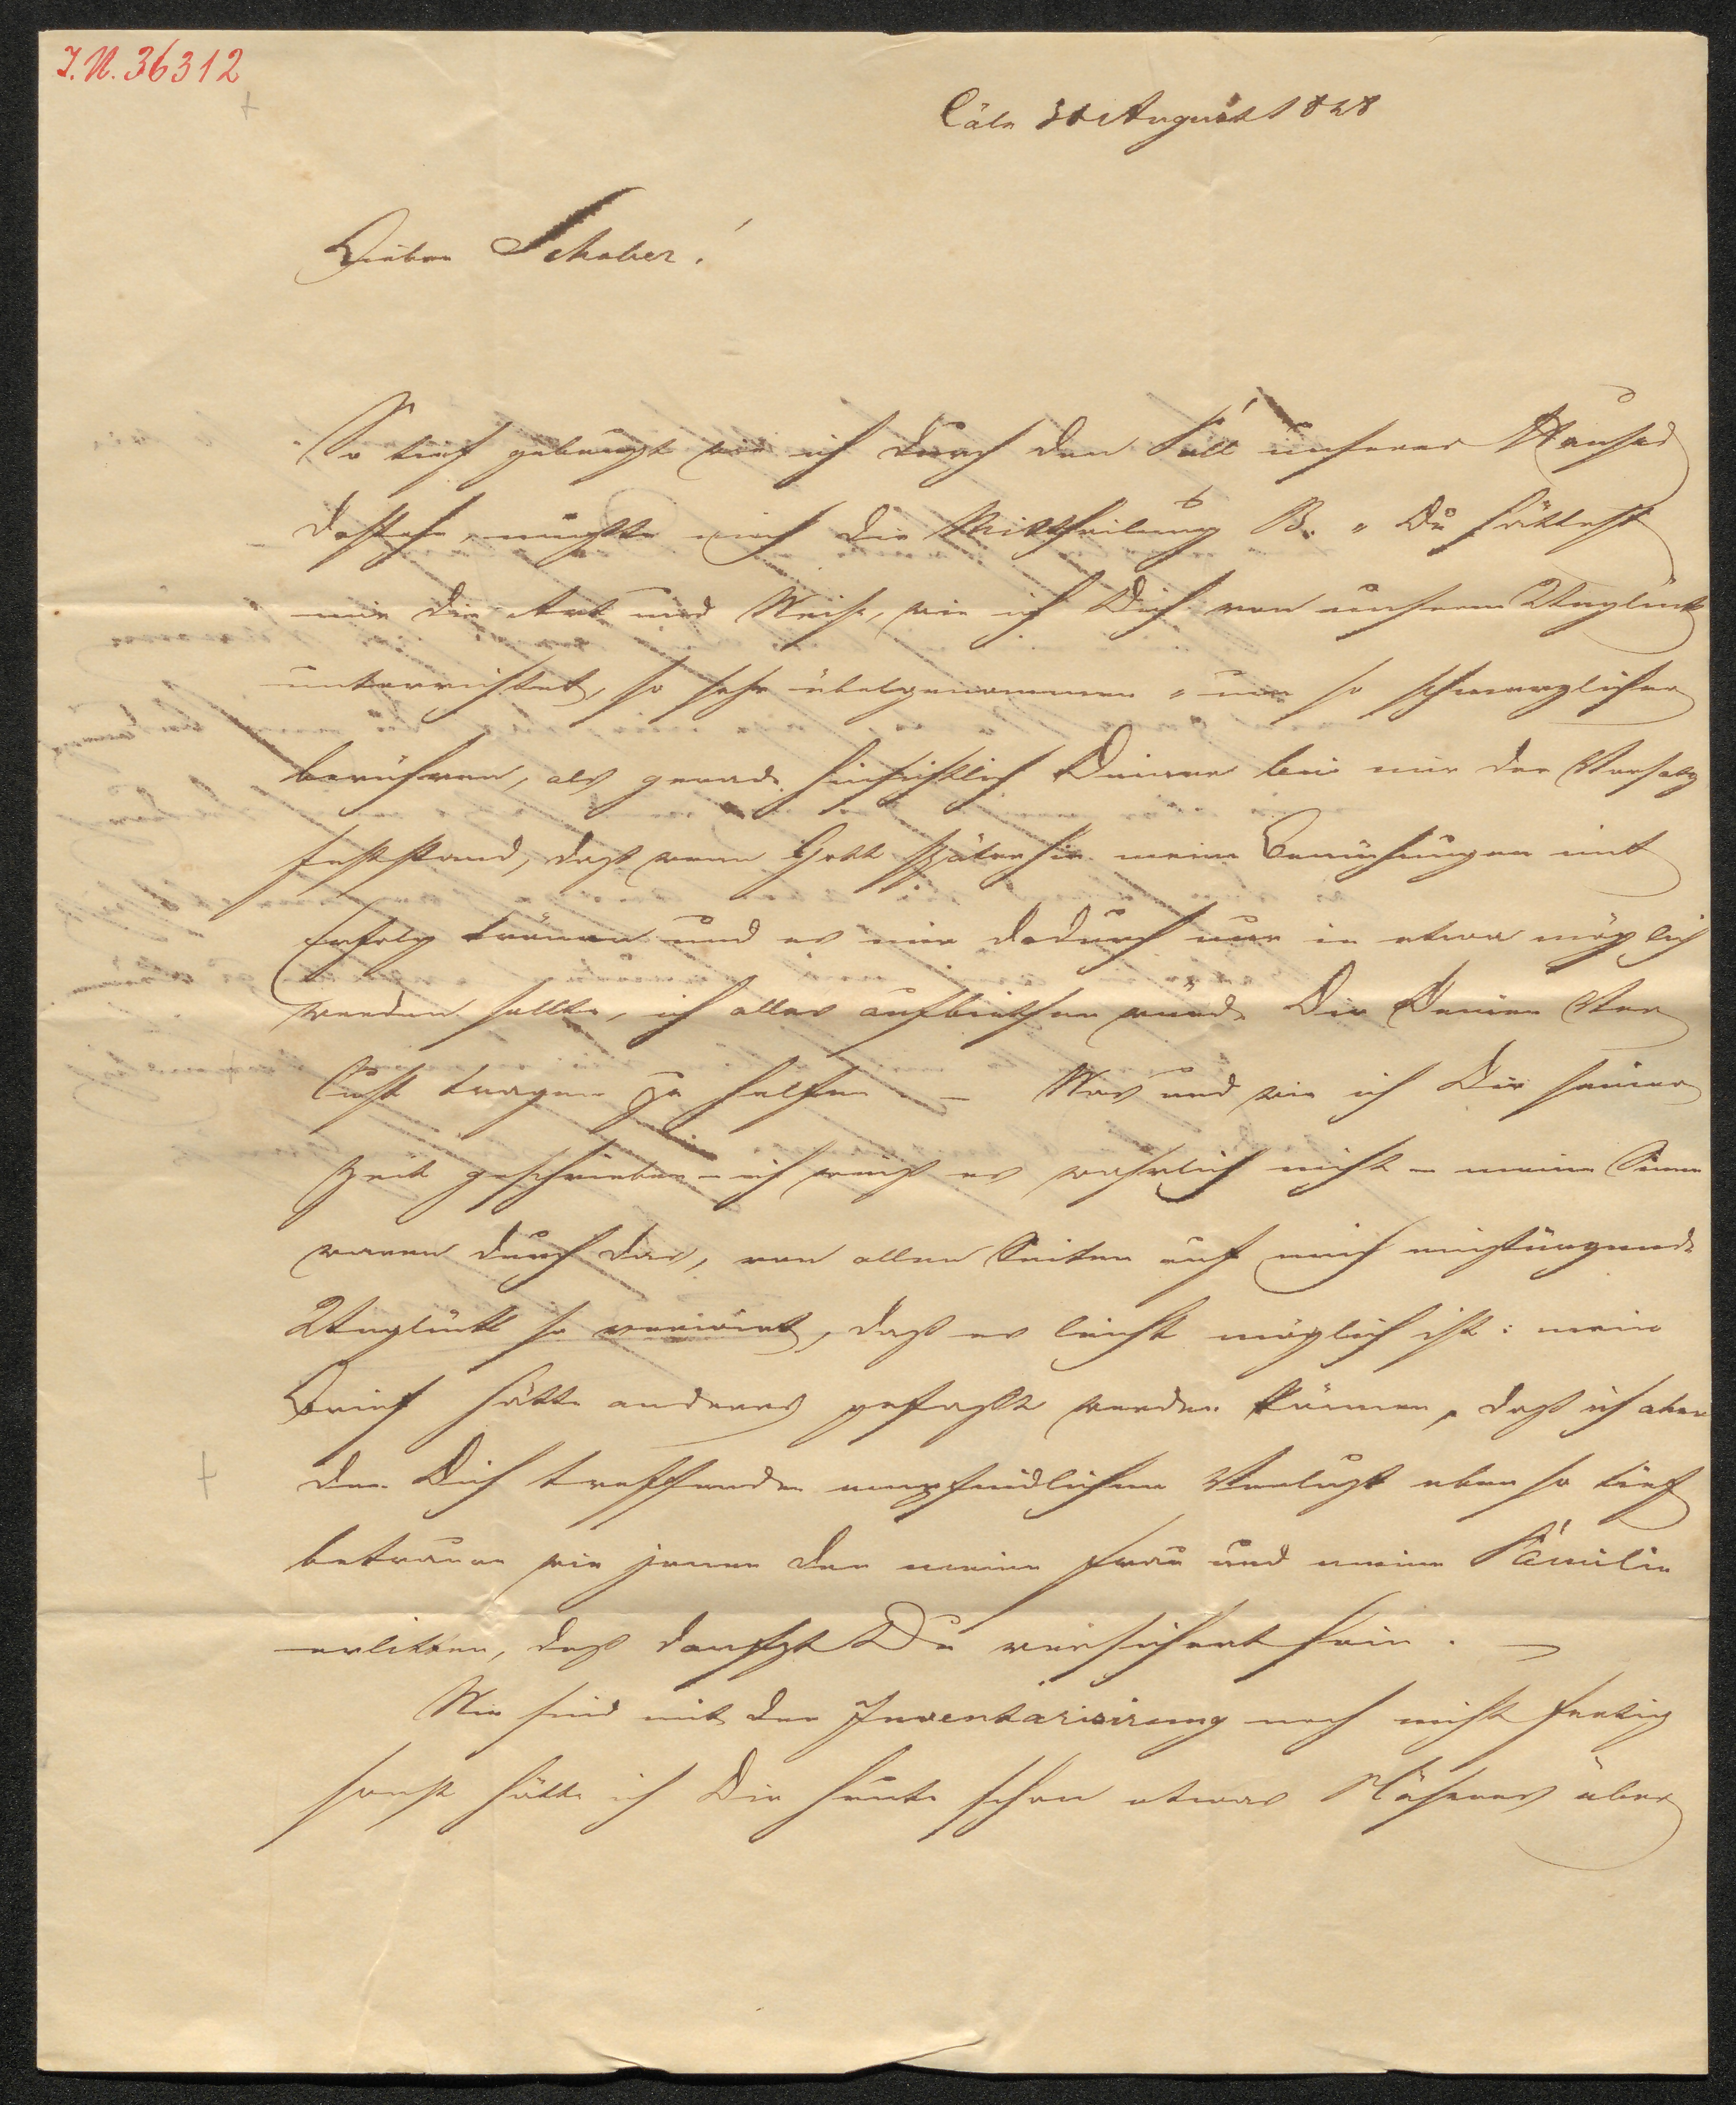 I.N. 36312
Cöln 31 August 1828
Lieber Schober!
So tief gebeugt wie ich durch den Fall unseres Hauses
dastehe, mußte mich die Mittheilung B. „Du hättest
mir die Art und Weise, wie ich Dich von unserm Unglück
unterrichtet, so sehr übelgenommen" um so schmerzlicher
berühren, als gerade hinsichtlich Deiner bei mir der Vorsatz
feststand, daß wenn Gott späterhin meine Bemühungen mit
Erfolg krönen und es mir dadurch nur in etwa möglich
werden sollte, ich alles aufbiethen würde Dir Deinen Ver
lust tragen zu helfen. — Was und wie ich Dir seiner
Zeit geschrieben – ich weiß es wahrlich nicht – meine Sinne
waren durch das, von allen Seiten auf mich einstürzende
Unglück so verwirrt, daß es leicht möglich ist: mein
Brief hätte anders gefaßt werden können, daß ich aber
den Dich treffenden empfindlichen Verlust eben so tief
betraure wie jenen den meine Frau und meine Familie
erlitten, deß darfst Du versichert sein. —
Wir sind mit der Inventarisirung noch nicht fertig
sonst hätte ich Dir heute schon etwas Näheres über